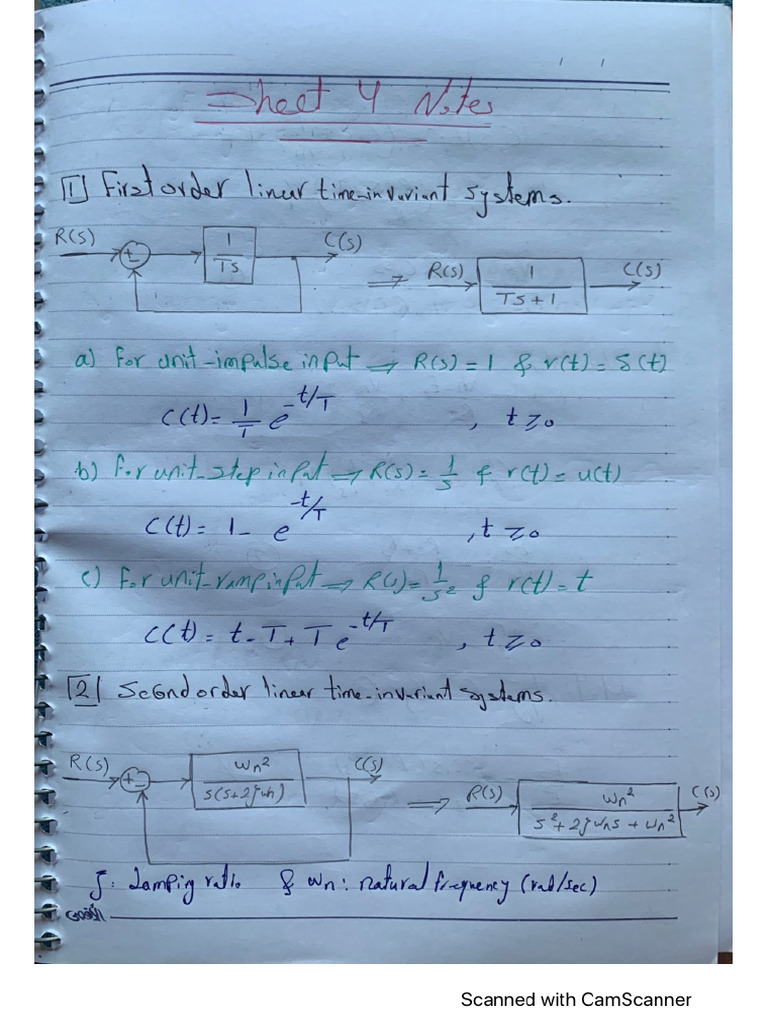 Sheet 4 Notes
1 First order linear time-invariant systems.
R(s) +- 1/Ts C(s) ⇒ R(s) 1/(Ts+1) C(s)
a) for unit-impulse input ⇒ R(s) = 1 & r(t) = δ(t)
C(t) = 1/T e^-t/T , t ≥ 0
b) for unit-step input ⇒ R(s) = 1/s & r(t) = u(t)
C(t) = 1 - e^-t/T , t ≥ 0
c) for unit-ramp input ⇒ R(s) = 1/s² & r(t) = t
C(t) = t - T + T e^-t/T , t ≥ 0
2 Second order linear time-invariant systems.
R(s) +- ωn²/s(s+2ζωn) C(s) ⇒ R(s) ωn²/(s²+2ζωns+ωn²) C(s)
ζ: damping ratio & ωn: natural frequency (rad/sec)
Scanned with CamScanner